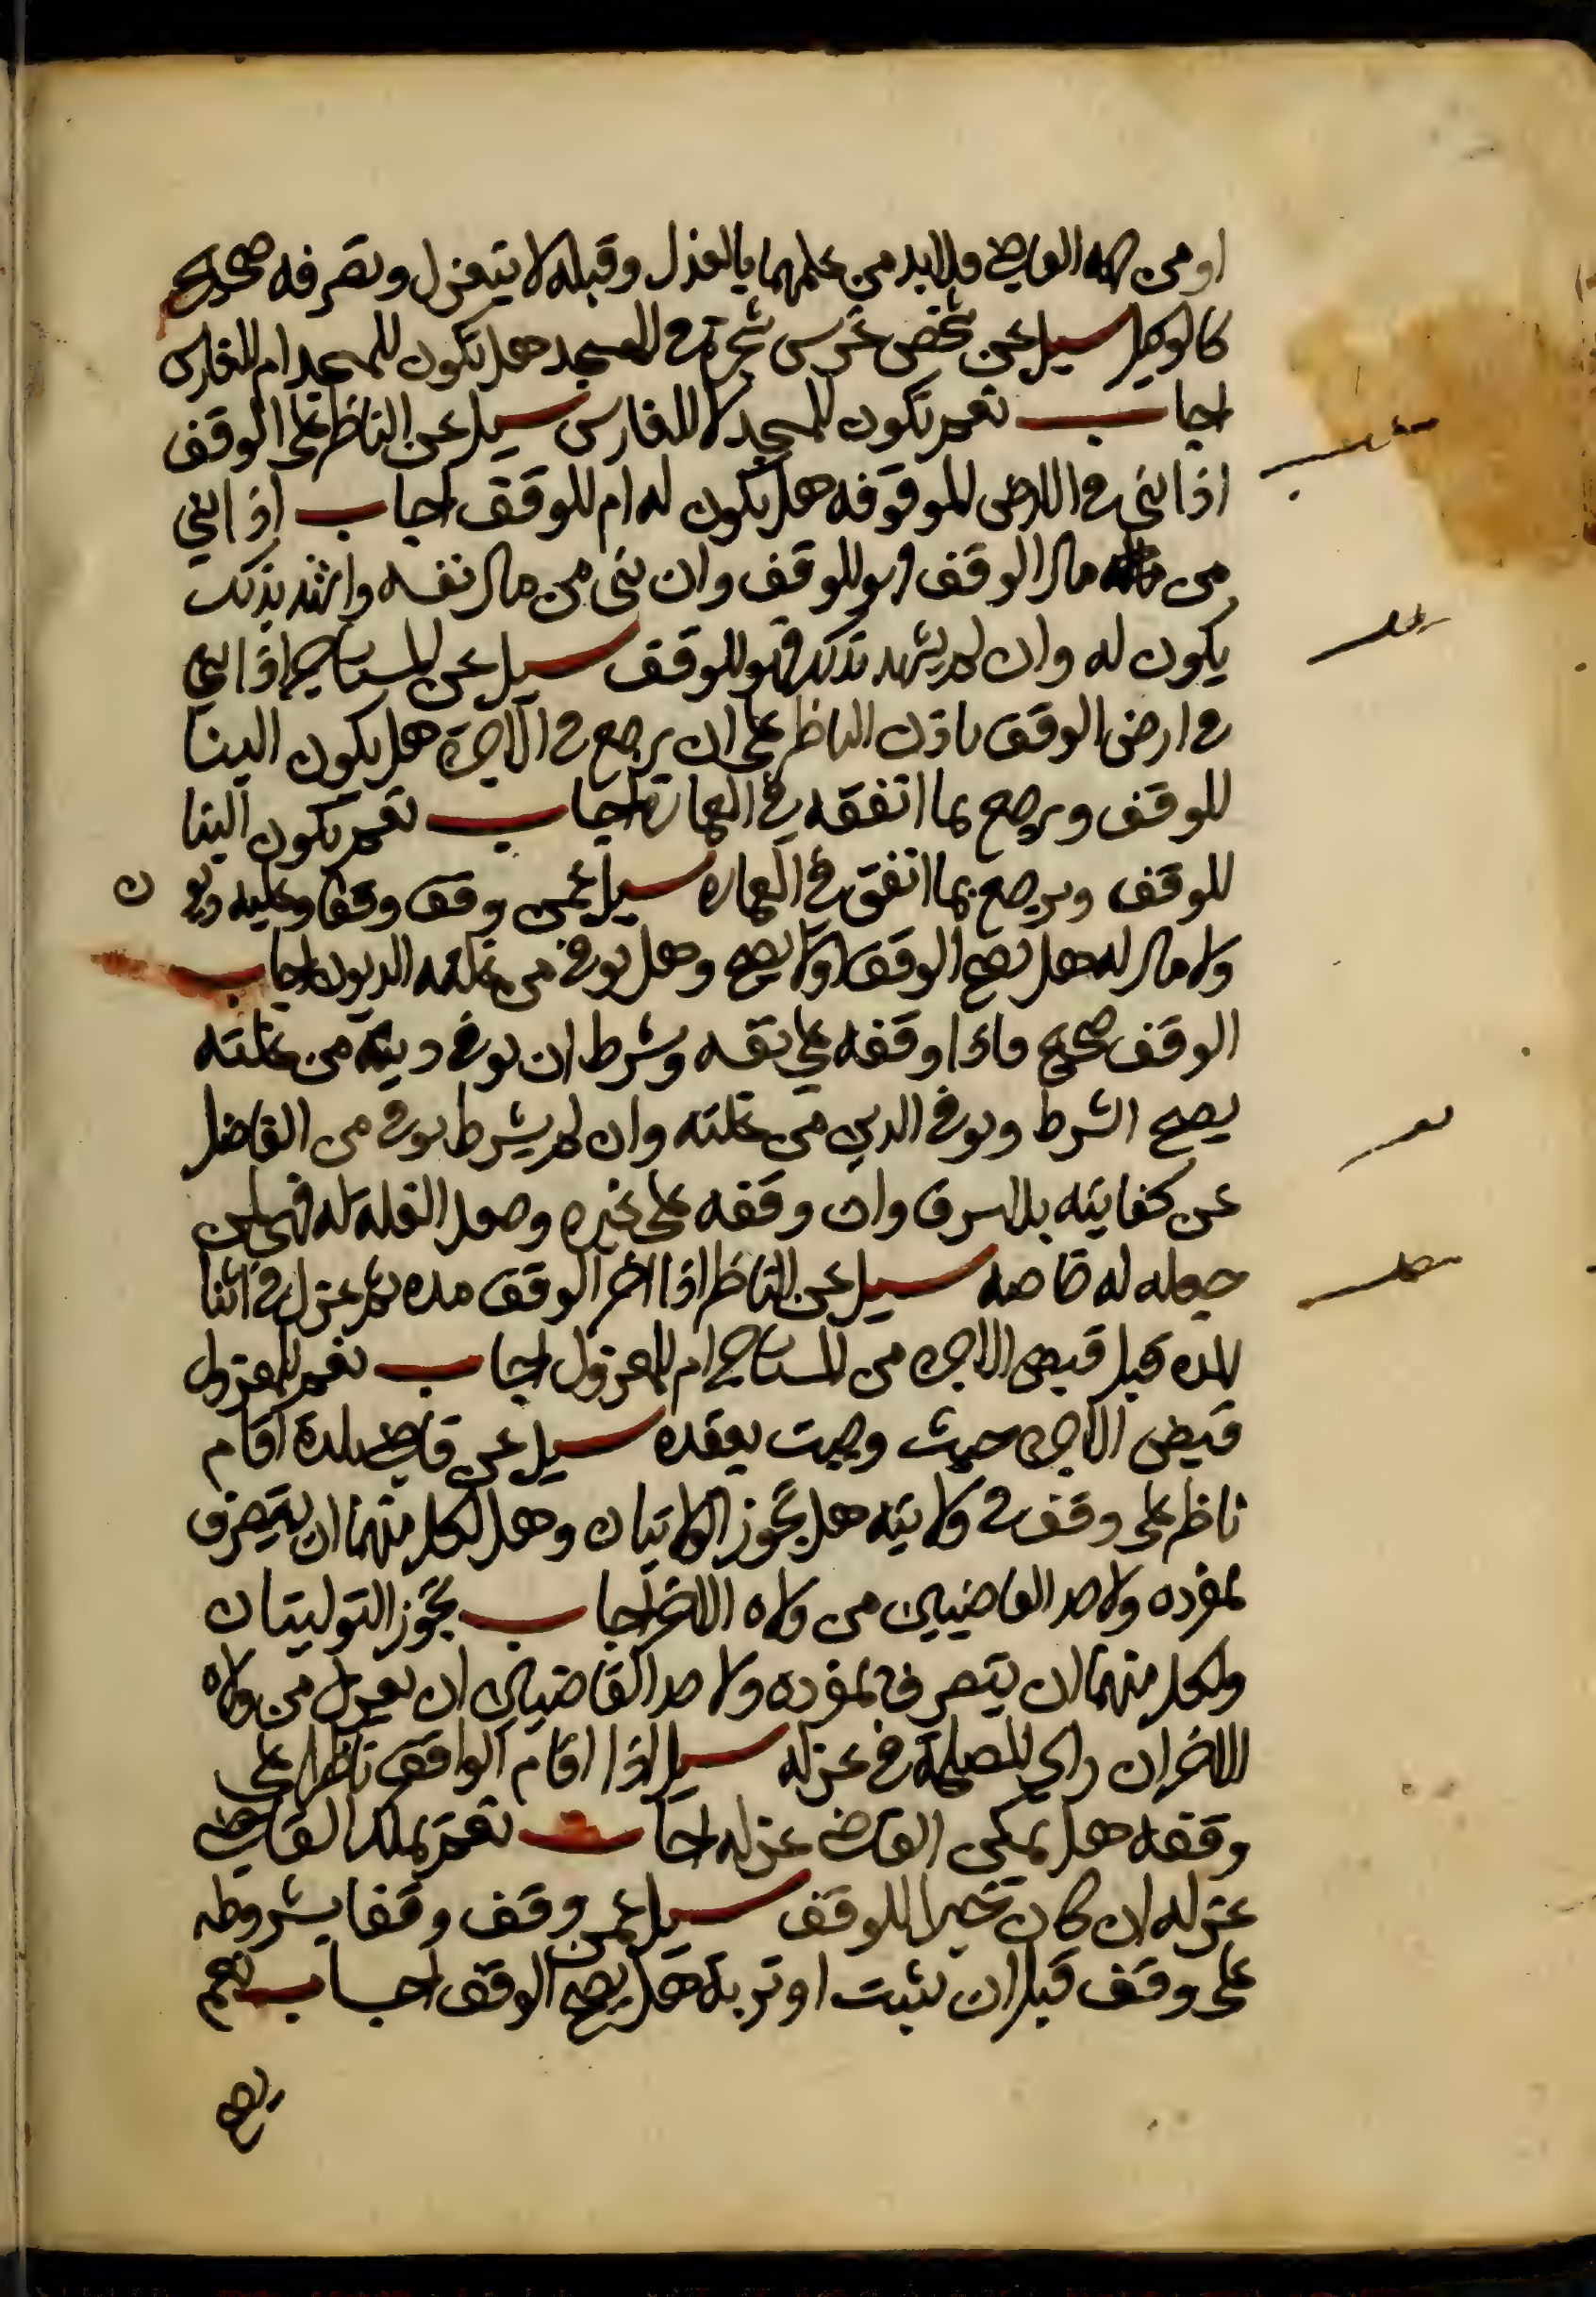 او من جهة القاضي فلا بد من علمهما بالعزل وقبله لا ينعزل وتصرفه صحيح
كالوكيل سيل عن شخص غرس شجرة في المسجد هل تكون للمسجد ام للغارس
اجاب نعم تكون للمسجد لا للغارس سيل عن الناظر على الوقف
اذا ابني في الارض الموقوفه هل يكون له ام للوقف اجاب اذا ابني
من مال الوقف فهو للوقف وان بنى من مال نفسه واشهد بذلك
يكون له وان لم يشهد بذلك فهو للوقف سيل عن المستاجر اذا ابني
في ارض الوقف باذن الناظر على ان يرجع في الاجرة هل يكون البنا
للوقف ويرجع بما انفقه في العمارة اجاب نعم يكون البنا
للوقف ويرجع بما انفق في العماره سيل عمن وقف وقفا وعليه ديون
ولا مال له هل يصح الوقف او لا يصح وهل يوفى من غلته الديون اجاب
الوقف صحيح فاذا وقفه على نفسه وشرط ان يوفى دينه من غلته
يصح الشرط ويوفى الدين من غلته وان لم يشرط يوفى من الفاضل
عن كفايته بلا سرف وان وقفه على غيره وجعل الغله له فهي لمن
جعله له خاصه سيل عن الناظر اذا اجر الوقف مده ثم عزل في اثنا
المده قبل قبض الاجره من المستاجر ام للمعزول اجاب نعم للمعزول
قبض الاجره حيث وجبت بعقده سيل عن قاضي بلدة اقام
ناظر على وقف في ولايته هل تجوز الولايتان وهل لكل منهما ان يتصرف
بمفرده ولاحد القاضيين من ولاه الاخر اجاب تجوز التوليتان
ولكل منهما ان يتصرف بمفرده ولاحد القاضيين ان يعزل من ولاه
الاخر ان راى المصلحة في عزله سيل اذا اقام الواقف ناظرا على
وقفه هل يمكن القاضي عزله اجاب نعم يملك القاضي
عزله ان كان خيرا للوقف سيل عمن وقف وقفا بشروطه
على وقف قبل ان يثبت او تربة هل يصح الوقف اجاب نعم
يصح